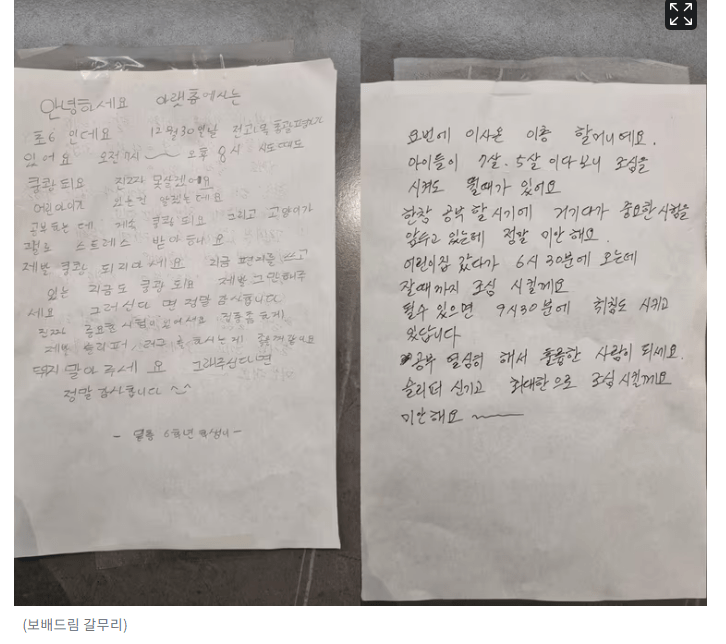 안녕하세요 아랫층에사는
초6 인데요 12월30일날 전고 평가가
있어요 오전 7시 ~ 오후 8시 시도때도
쿵쾅 되요 진짜 못살겠어요
어린아이가 있는건 알겠는데요
공부 는데 계속 쿵쾅 되요 그리고 고양이가
스트레스 받아 요
제발 쿵쾅 되지마세요 지금 편지를 쓰고
있는 지금도 쿵쾅 되요 제발 그만해주
세요 그러신다면 정말 감사합니다
진짜 중요한 시험이 있어서요
제발 슬리퍼, 까시는게 좋을꺼같아요
뛰지 말아 주세요 그래주신다면
정말 감사합니다 ^^
- 6학년 학생이 -
요번에 이사온 이층 할머니예요.
아이들이 7살. 5살 이다보니 조심을
시켜도 뛸때가 있어요
한창 공부 할시기에 거기다가 중요한 시험을
앞두고 있는데 정말 미안해요.
어린이집 갔다가 6시 30분에 오는데
잘때까지 조심 시킬께요
될수 있으면 9시30분에 취침도 시키고
있답니다
공부 열심히 해서 훌륭한 사람이 되세요.
슬리퍼 신기고 최대한으로 조심 시킬께요
미안해요 ~
(보배드림 갈무리)